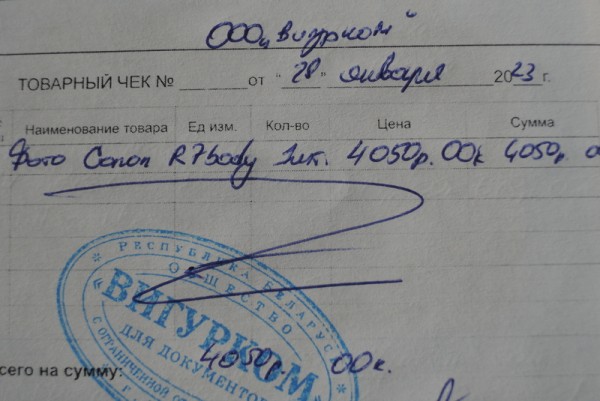 ООО „Вигурком"
ТОВАРНЫЙ ЧЕК № ______ от "28" января 2023 г.
Наименование товара Ед изм. Кол-во Цена Сумма
Фото Canon R7 body 1шт. 4050р. 00к 4050р.
* РЕСПУБЛИКА БЕЛАРУСЬ *
ОБЩЕСТВО
«ВИГУРКОМ»
ДЛЯ ДОКУМЕНТОВ
С ОГРАНИЧЕННОЙ
сего на сумму: 4050р. 00к.